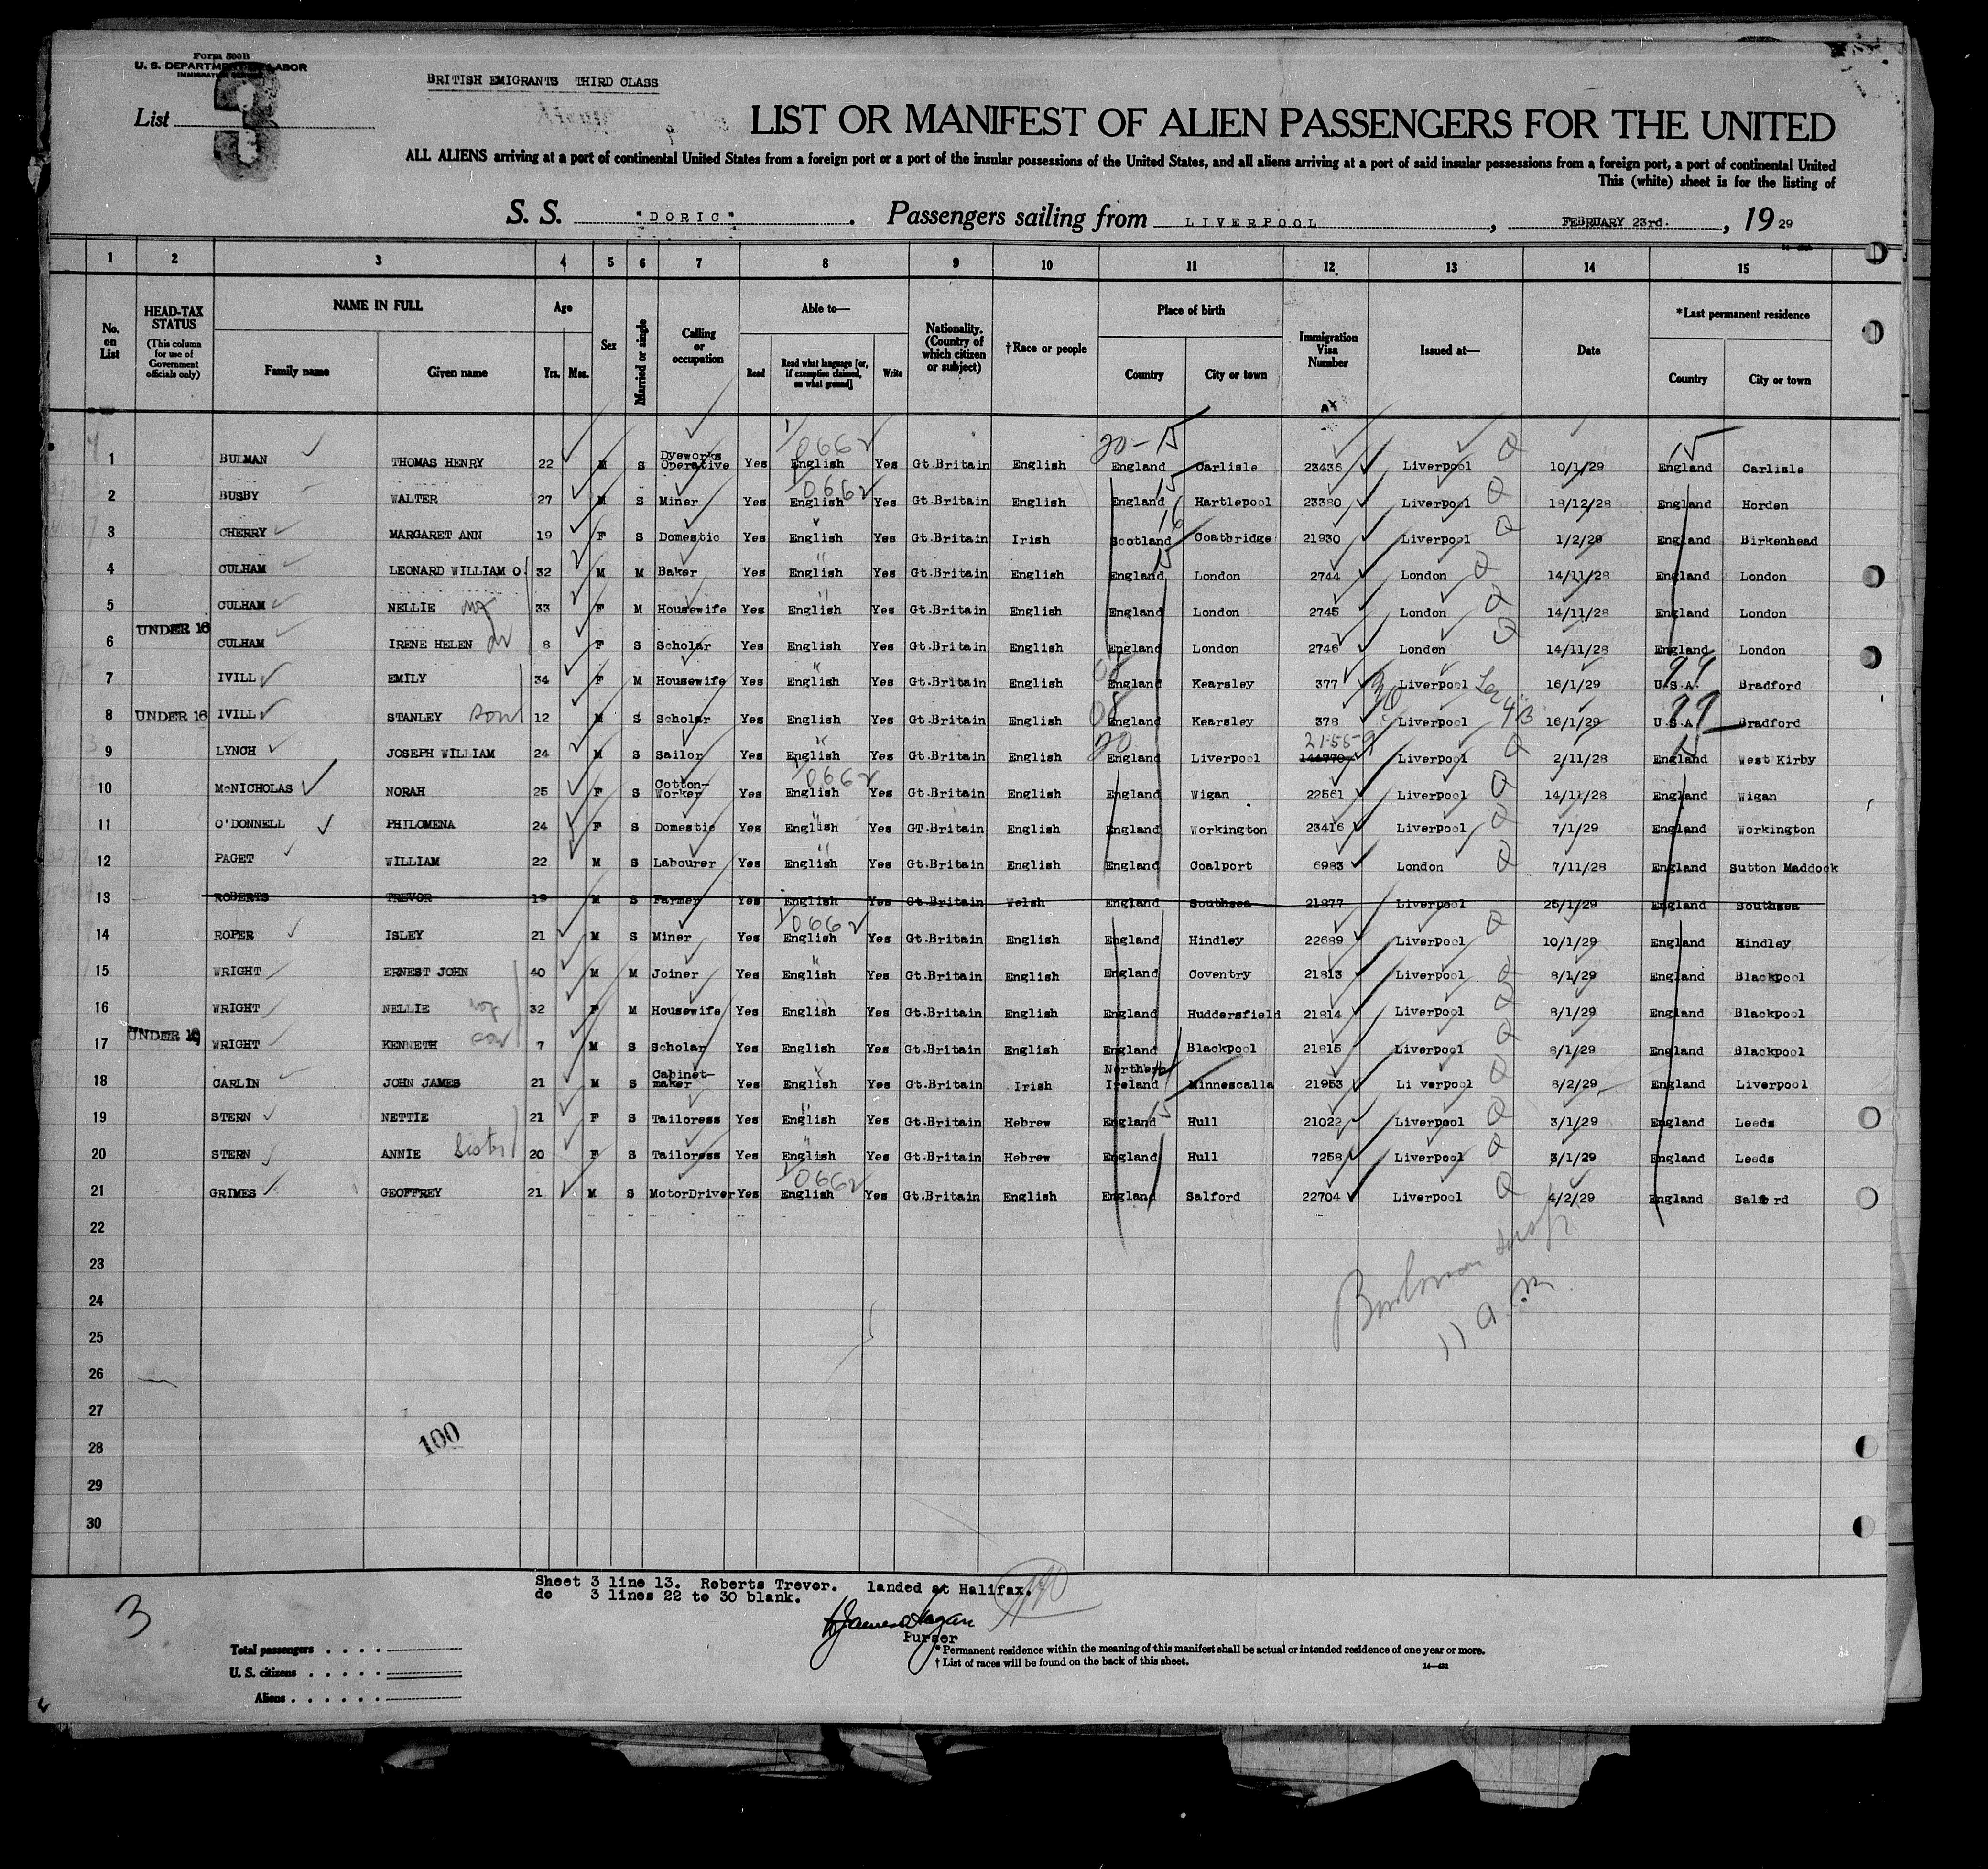 Form 500B
U. S. DEPARTMENT OF LABOR
IMMIGRATION SERVICE
BRITISH EMIGRANTS THIRD CLASS
List 3
LIST OR MANIFEST OF ALIEN PASSENGERS FOR THE UNITED
ALL ALIENS arriving at a port of continental United States from a foreign port or a port of the insular possessions of the United States, and all aliens arriving at a port of said insular possessions from a foreign port, a port of continental United
This (white) sheet is for the listing of
S. S. "DORIC". Passengers sailing from LIVERPOOL, FEBRUARY 23rd., 1929
1 2 3 4 5 6 7 8 9 10 11 12 13 14 15
No. on List
HEAD-TAX STATUS
(This column for use of Government officials only)
NAME IN FULL
Family name
Given name
Age
Yrs. Mos.
Sex
Married or single
Calling or occupation
Able to—
Read
Read what language [or, if exemption claimed, on what ground]
Write
Nationality. (Country of which citizen or subject)
†Race or people
Place of birth
Country
City or town
Immigration Visa Number
Issued at—
Date
*Last permanent residence
Country
City or town
1 BULMAN THOMAS HENRY 22 M S Dyeworks Operative Yes English 0662 Yes Gt.Britain English England 20-15 Carlisle 23436 Liverpool Q 10/1/29 England 15 Carlisle
2 BUSBY WALTER 27 M S Miner Yes English 0662 Yes Gt.Britain English England 15 Hartlepool 23380 Liverpool Q 18/12/28 England Horden
3 CHERRY MARGARET ANN 19 F S Domestic Yes English Yes Gt.Britain Irish Scotland 16 Coatbridge 21930 Liverpool Q 1/2/29 England Birkenhead
4 CULHAM LEONARD WILLIAM O. 32 M M Baker Yes English " Yes Gt.Britain English England 15 London 2744 London Q 14/11/28 England London
5 CULHAM NELLIE wf 33 F M Housewife Yes English " Yes Gt.Britain English England London 2745 London Q 14/11/28 England London
6 UNDER 16 CULHAM IRENE HELEN dr 8 F S Scholar Yes English Yes Gt.Britain English England London 2746 London Q 14/11/28 England London
7 IVILL EMILY 34 F M Housewife Yes English " Yes Gt.Britain English England Kearsley 377 Liverpool 16/1/29 U.S.A. 99 Bradford
8 UNDER 16 IVILL STANLEY son 12 M S Scholar Yes English Yes Gt.Britain English England Kearsley 378 Liverpool 16/1/29 U.S.A 99 Bradford
9 LYNCH JOSEPH WILLIAM 24 M S Sailor Yes English " Yes Gt.Britain English England 20 Liverpool 21559 Liverpool Q 2/11/28 England 15 West Kirby
10 McNICHOLAS NORAH 25 F S Cotton-Worker Yes English 0662 Yes Gt.Britain English England Wigan 22561 Liverpool Q 14/11/28 England Wigan
11 O'DONNELL PHILOMENA 24 F S Domestic Yes English " Yes GT.Britain English England Workington 23416 Liverpool Q 7/1/29 England Workington
12 PAGET WILLIAM 22 M S Labourer Yes English " Yes Gt.Britain English England Coalport 6983 London Q 7/11/28 England Sutton Maddock
13 ROBERTS TREVOR 19 M S Farmer Yes English Yes Gt.Britain Welsh England Southsea 21877 Liverpool 25/1/29 England Southsea
14 ROPER ISLEY 21 M S Miner Yes English 0662 Yes Gt.Britain English England Hindley 22689 Liverpool Q 10/1/29 England Hindley
15 WRIGHT ERNEST JOHN 40 M M Joiner Yes English " Yes Gt.Britain English England Coventry 21813 Liverpool Q 8/1/29 England Blackpool
16 WRIGHT NELLIE wf 32 F M Housewife Yes English Yes Gt.Britain English England Huddersfield 21814 Liverpool Q 8/1/29 England Blackpool
17 UNDER 16 WRIGHT KENNETH son 7 M S Scholar Yes English Yes Gt.Britain English England Blackpool 21815 Liverpool Q 8/1/29 England Blackpool
18 CARLIN JOHN JAMES 21 M S Cabinet-maker Yes English " Yes Gt.Britain Irish Northern Ireland Minnescalla 21953 Li verpool Q 8/2/29 England Liverpool
19 STERN NETTIE 21 F S Tailoress Yes English " Yes Gt.Britain Hebrew England 15 Hull 21022 Liverpool Q 3/1/29 England Leeds
20 STERN ANNIE Sister 20 F S Tailoress Yes English " Yes Gt.Britain Hebrew England Hull 7258 Liverpool Q 3/1/29 England Leeds
21 GRIMES GEOFFREY 21 M S MotorDriver Yes English 0662 Yes Gt.Britain English England Salford 22704 Liverpool Q 4/2/29 England Salford
22
23
24
25
26
27
28
29
30
100
Sheet 3 line 13. Roberts Trevor. landed at Halifax.
do 3 lines 22 to 30 blank.
3
Purser
Total passengers
U. S. citizens
Aliens
* Permanent residence within the meaning of this manifest shall be actual or intended residence of one year or more.
† List of races will be found on the back of this sheet.